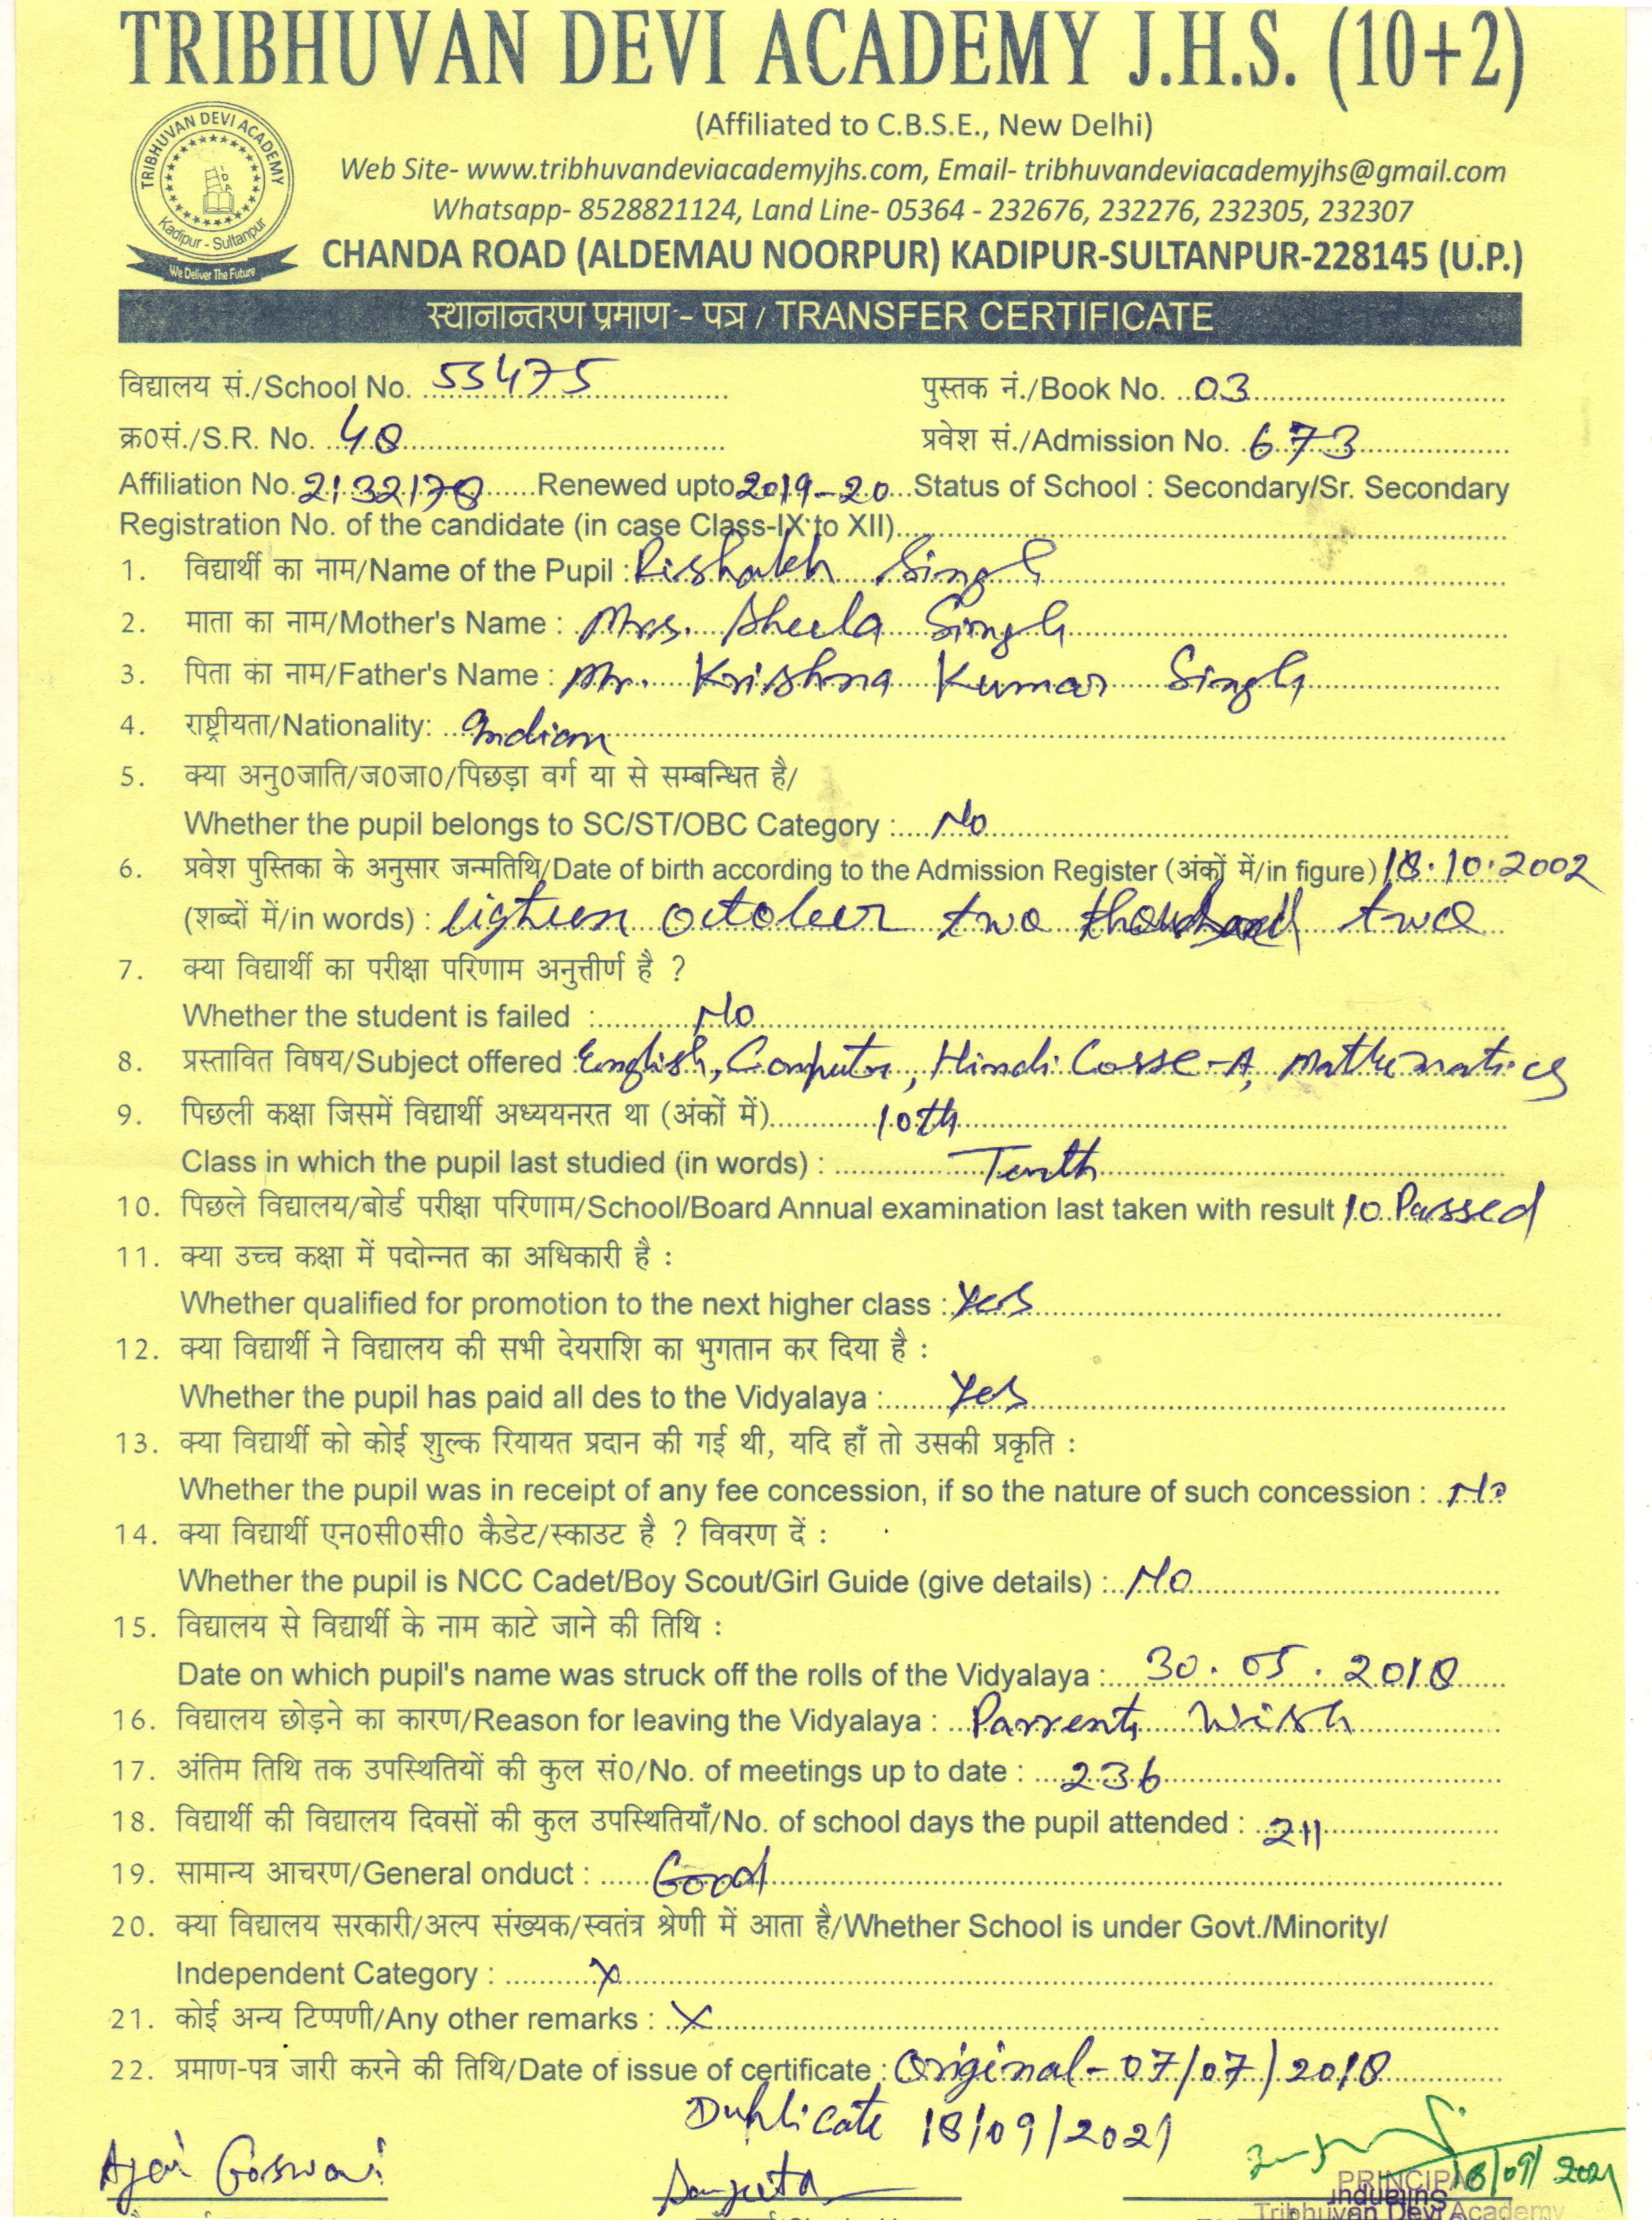 TRIBHUVAN DEVI ACADEMY J.H.S. (10+2)
(Affiliated to C.B.S.E., New Delhi)
TRIBHUVAN DEVI ACADEMY
Kadipur - Sultanpur
We Deliver The Future
Web Site- www.tribhuvandeviacademyjhs.com, Email- tribhuvandeviacademyjhs@gmail.com
Whatsapp- 8528821124, Land Line- 05364 - 232676, 232276, 232305, 232307
CHANDA ROAD (ALDEMAU NOORPUR) KADIPUR-SULTANPUR-228145 (U.P.)
स्थानान्तरण प्रमाण - पत्र / TRANSFER CERTIFICATE
विद्यालय सं./School No. 55475 पुस्तक नं./Book No. 03
क्र0सं./S.R. No. 48 प्रवेश सं./Admission No. 673
Affiliation No. 2132178 Renewed upto 2019-20 Status of School : Secondary/Sr. Secondary
Registration No. of the candidate (in case Class-IX to XII)
1. विद्यार्थी का नाम/Name of the Pupil : Rishabh Singh
2. माता का नाम/Mother's Name : Mrs. Sheela Singh
3. पिता का नाम/Father's Name : Mr. Krishna Kumar Singh
4. राष्ट्रीयता/Nationality: Indian
5. क्या अनु0जाति/ज0जा0/पिछड़ा वर्ग या से सम्बन्धित है/
Whether the pupil belongs to SC/ST/OBC Category : No
6. प्रवेश पुस्तिका के अनुसार जन्मतिथि/Date of birth according to the Admission Register (अंकों में/in figure) 18.10.2002
(शब्दों में/in words) : eighteen october two thousand two
7. क्या विद्यार्थी का परीक्षा परिणाम अनुत्तीर्ण है ?
Whether the student is failed : No
8. प्रस्तावित विषय/Subject offered : English, Computer, Hindi Corse-A, Mathematics
9. पिछली कक्षा जिसमें विद्यार्थी अध्ययनरत था (अंकों में) 10th
Class in which the pupil last studied (in words) : Tenth
10. पिछले विद्यालय/बोर्ड परीक्षा परिणाम/School/Board Annual examination last taken with result 10 Passed
11. क्या उच्च कक्षा में पदोन्नत का अधिकारी है :
Whether qualified for promotion to the next higher class : Yes
12. क्या विद्यार्थी ने विद्यालय की सभी देयराशि का भुगतान कर दिया है :
Whether the pupil has paid all des to the Vidyalaya : Yes
13. क्या विद्यार्थी को कोई शुल्क रियायत प्रदान की गई थी, यदि हाँ तो उसकी प्रकृति :
Whether the pupil was in receipt of any fee concession, if so the nature of such concession : No
14. क्या विद्यार्थी एन0सी0सी0 कैडेट/स्काउट है ? विवरण दें :
Whether the pupil is NCC Cadet/Boy Scout/Girl Guide (give details) : No
15. विद्यालय से विद्यार्थी के नाम काटे जाने की तिथि :
Date on which pupil's name was struck off the rolls of the Vidyalaya : 30.05.2018
16. विद्यालय छोड़ने का कारण/Reason for leaving the Vidyalaya : Parrents Wish
17. अंतिम तिथि तक उपस्थितियों की कुल सं0/No. of meetings up to date : 236
18. विद्यार्थी की विद्यालय दिवसों की कुल उपस्थितियाँ/No. of school days the pupil attended : 211
19. सामान्य आचरण/General onduct : Good
20. क्या विद्यालय सरकारी/अल्प संख्यक/स्वतंत्र श्रेणी में आता है/Whether School is under Govt./Minority/
Independent Category : X
21. कोई अन्य टिप्पणी/Any other remarks : X
22. प्रमाण-पत्र जारी करने की तिथि/Date of issue of certificate : Original - 07/07/2018
Duplicate 18/09/2021
Ajai Goswami Sangeeta 18/09/2021
PRINCIPAL
Tribhuvan Devi Academy